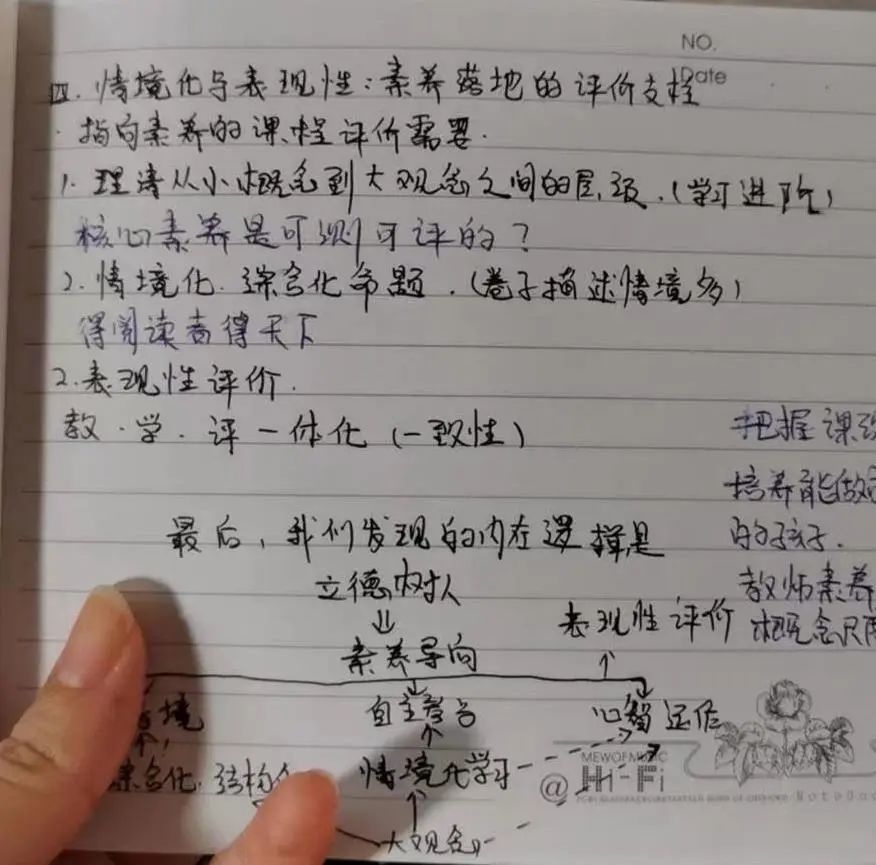 NO.
Date
四.情境化与表现性:素养落地的评价支撑
·指向素养的课程评价需要.
1.理清从小概念到大观念之间的层级.(学习进阶)
核心素养是可测可评的?
2.情境化.综合化命题.(卷子描述情境多)
得阅读者得天下
2.表现性评价.
教.学.评一体化(一致性)
把握课
培养能做
的孩子.
教师素养
概念
最后,我们发现的内在逻辑是
立德树人
⇓
素养导向
表现性评价
↑
境
自主
心智运作
综合化.结构
情境化学习
大观念
MEWOFMUSIC
@Hi-Fi